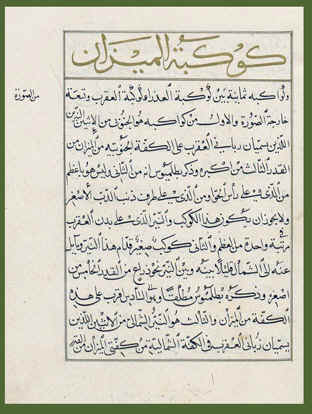 كوكبة الميزان
وكواكبه ثمانية بين كوكبة العذراء وكوكبة العقرب وتسعة
خارجة الصورة والاول من كواكبه هو الجنوبي من الاثنين الذين
اللذين يسميان زباني العقرب على الكفة الجنوبية من الميزان من
القدر الثالث من اكبره وذكر بطلميوس انه من الثاني وليس هو باعظم
من الذي على رأس الحوا ومن الذي على طرف ذنب الدب الأصغر
ولا يجوز ان يكون هذا الكوكب والنير الذي على بدن العقرب
في مرتبة واحدة من العظم والثاني كوكب صغير قدام هذا النير ومايل
عنه الى الشمال قليلا بينه وبين النير نحو ذراع من القدر الخامس من
اصغره وذكره بطلميوس مطلقا وهو الذي قرب على هذه
الكفة من الميزان والثالث هو النير الشمالي من الاثنين اللذين
يسميان زباني العقرب في الكفة الشمالية من كفتي الميزان من
من الصورة